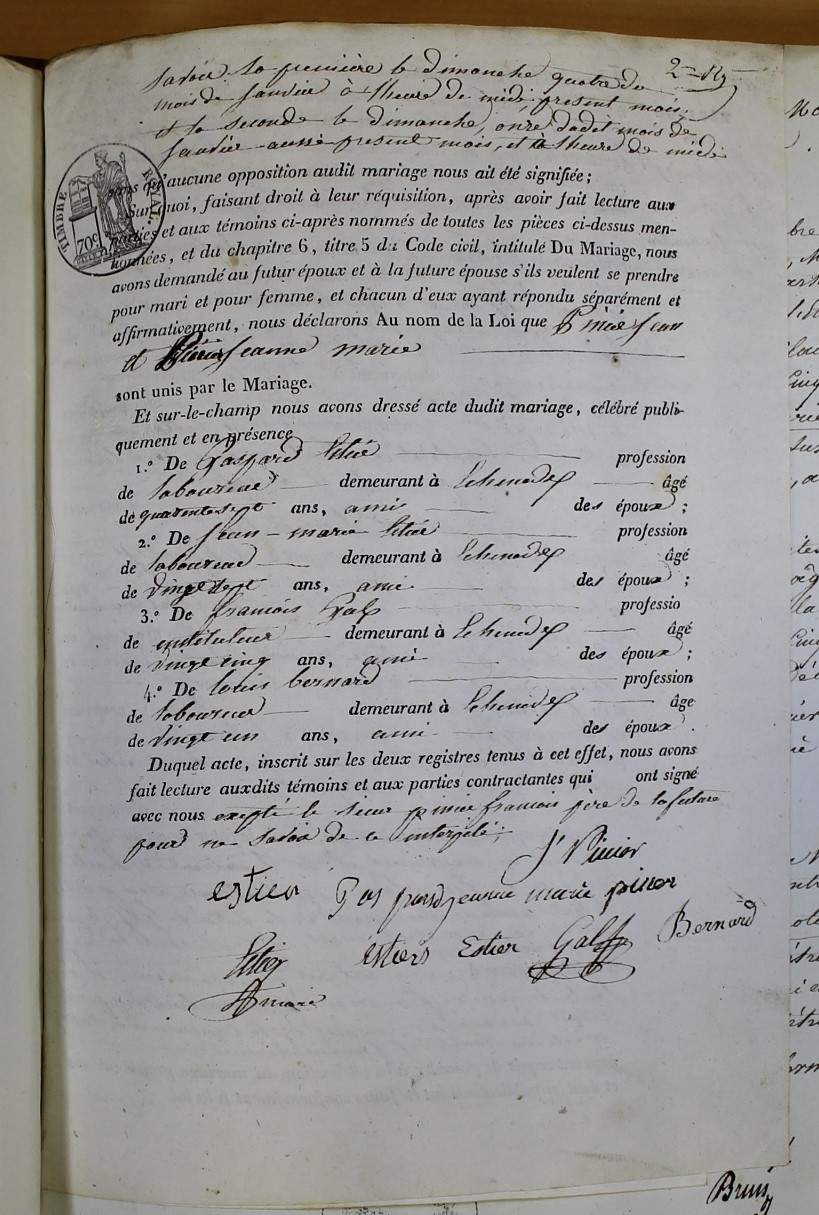 savoir la première le dimanche quatre du
mois de Janvier à l'heure de midi, présent mois,
et la seconde le dimanche, onze dudit mois de
Janvier aussi présent mois, et à l'heure de midi
TIMBRE ROYAL
70c
sans qu'aucune opposition audit mariage nous ait été signifiée ;
Sur quoi, faisant droit à leur réquisition, après avoir fait lecture aux
parties et aux témoins ci-après nommés de toutes les pièces ci-dessus men-
tionnées, et du chapitre 6, titre 5 du Code civil, intitulé Du Mariage, nous
avons demandé au futur époux et à la future épouse s'ils veulent se prendre
pour mari et pour femme, et chacun d'eux ayant répondu séparément et
affirmativement, nous déclarons Au nom de la Loi que Jean
et Jeanne marie
sont unis par le Mariage.
Et sur-le-champ nous avons dressé acte dudit mariage, célébré publi-
quement et en présence
1.° De Gaspard profession
de laboureur demeurant à âgé
de quarante sept ans, ami des époux ;
2.° De Jean-marie profession
de laboureur demeurant à âgé
de vingt sept ans, ami des époux ;
3.° De francois Galf professio
de instituteur demeurant à âgé
de vingt cinq ans, ami des époux ;
4.° De louis bernard profession
de laboureur demeurant à âge
de vingt un ans, ami des époux.
Duquel acte, inscrit sur les deux registres tenus à cet effet, nous avons
fait lecture auxdits témoins et aux parties contractantes qui ont signé
avec nous excepté le sieur francois père de la future
pour ne savoir de ce interpelé ;
estier Gas pard jeanne marie piner
estiers Estier Galf Bernard
maire
Brun